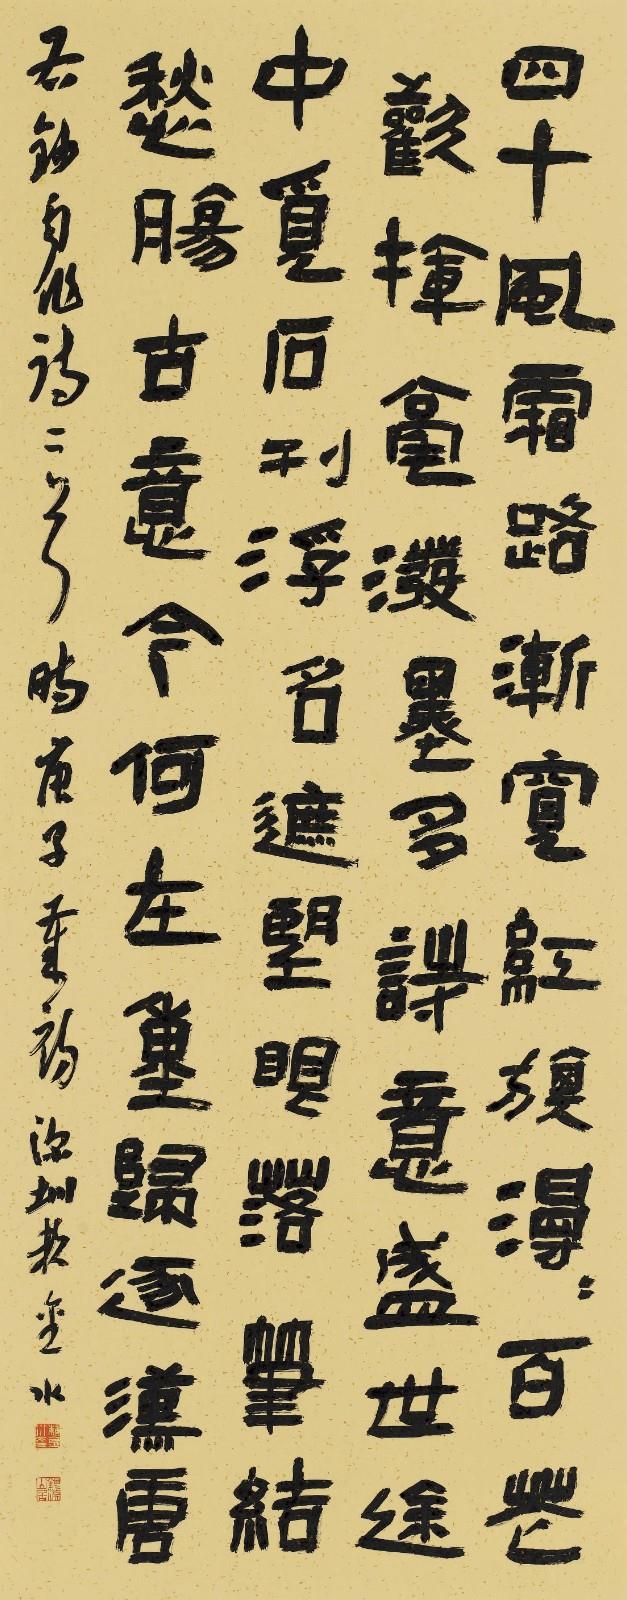 四十風霜路漸寬紅旗漫々百花
歡揮毫潑墨多詩意盛世途
中覓石刊浮名遮望眼落筆結
愁腸古意今何在重歸逐漢唐
右鈔自作詩二首時庚子重陽深圳金水